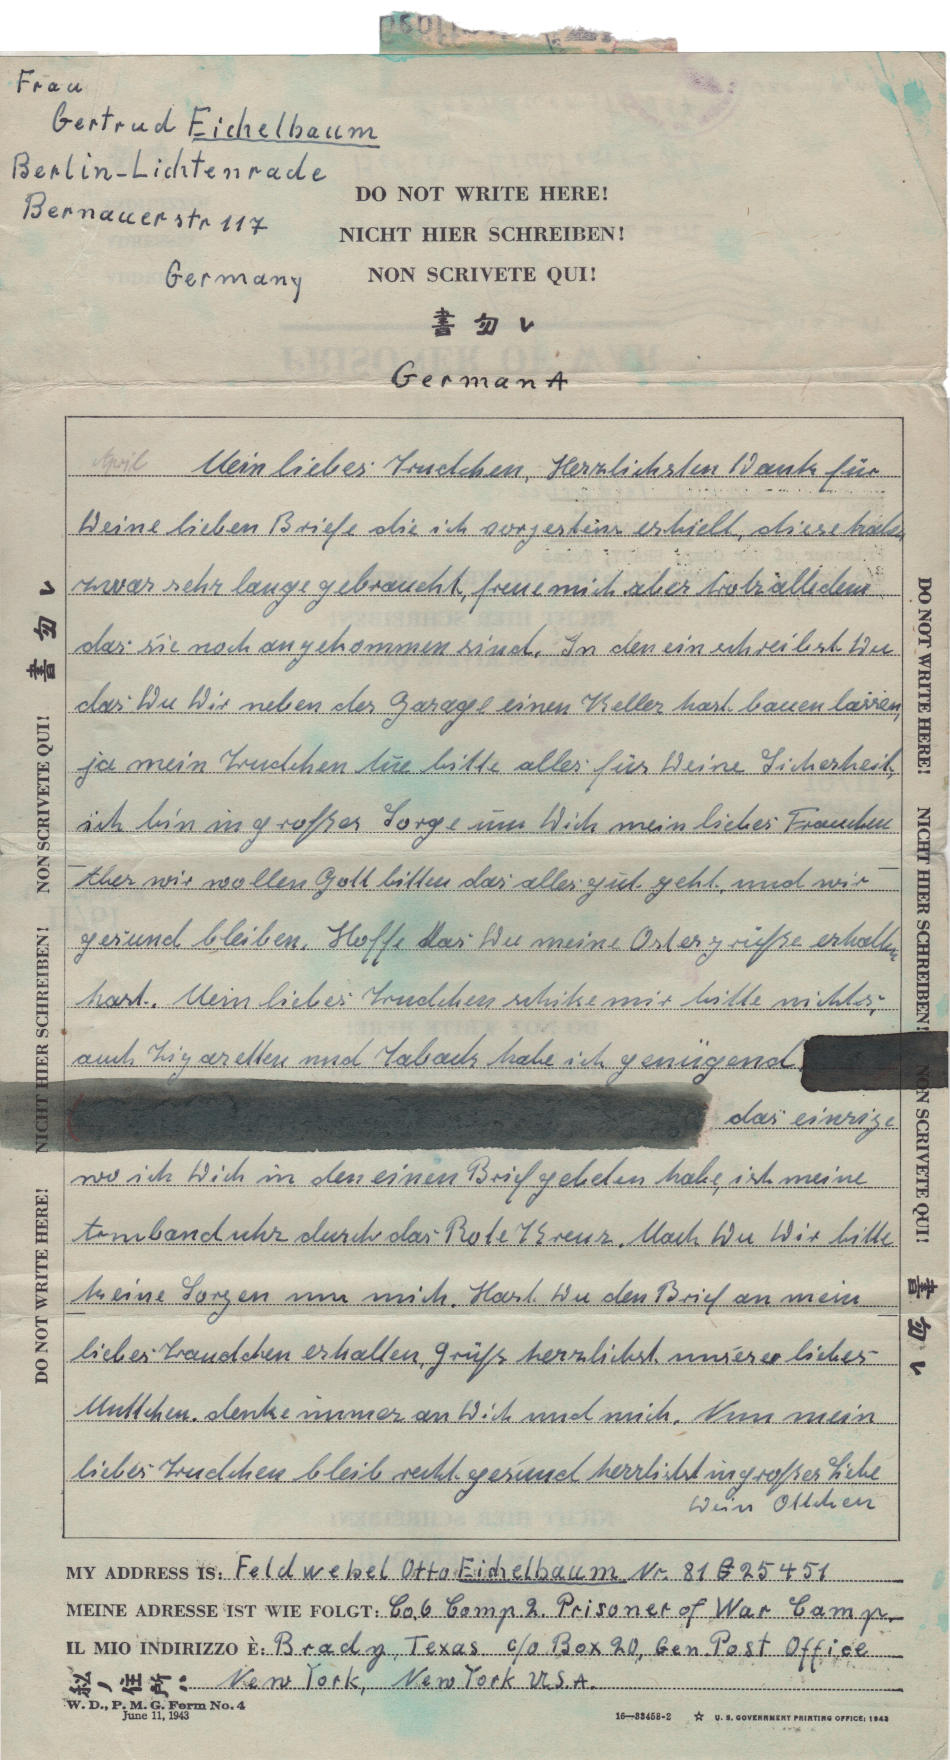 Frau
Gertrud Eichelbaum
Berlin-Lichtenrade
Bernauerstr 117
Germany
DO NOT WRITE HERE!
NICHT HIER SCHREIBEN!
NON SCRIVETE QUI!
書 勿 レ
German A
April Mein liebes Trudchen, Herzlichsten Dank für
Deine lieben Briefe die ich vorgestern erhielt, diese haben
zwar sehr lange gebraucht, freue mich aber trotz alledem
das sie noch angekommen sind. In den ein schreibst Du
das Du Dir neben der Garage einen Keller hast bauen lassen,
ja mein Trudchen tue bitte alles für Deine Sicherheit,
ich bin in großer Sorge um Dich mein liebes Frauchen
Aber wir wollen Gott bitten das alles gut geht, und wir
gesund bleiben. Hoffe das Du meine Ostergrüße erhalten
hast. Mein liebes Trudchen schike mir bitte nichts,
auch Zigaretten und Taback habe ich genügend.
das einzige
wo ich Dich in den einen Brief gebeten habe, ist meine
Armbanduhr durch das Rote Kreuz. Mach Du Dir bitte
keine Sorgen um mich. Hast Du den Brief an mein
liebes Traudchen erhalten, grüß herzlichst unserer liebes
Muttchen. denke immer an Dich und mich. Nun mein
liebes Trudchen bleib recht gesund herzlichst in großer Liebe
Dein Ottchen
DO NOT WRITE HERE! NICHT HIER SCHREIBEN! NON SCRIVETE QUI! 書 勿 レ
DO NOT WRITE HERE! NICHT HIER SCHREIBEN! NON SCRIVETE QUI! 書 勿 レ
MY ADDRESS IS: Feldwebel Otto Eichelbaum Nr. 81 G 25451
MEINE ADRESSE IST WIE FOLGT: Co,6 Comp 2. Prisoner of War Camp.
IL MIO INDIRIZZO È: Brady, Texas c/o Box 20, Gen. Post Office
私ノ住所: New York, New York U.S.A.
W. D., P. M. G. Form No. 4
June 11, 1943
16—33458-2 ☆ U. S. GOVERNMENT PRINTING OFFICE: 1943